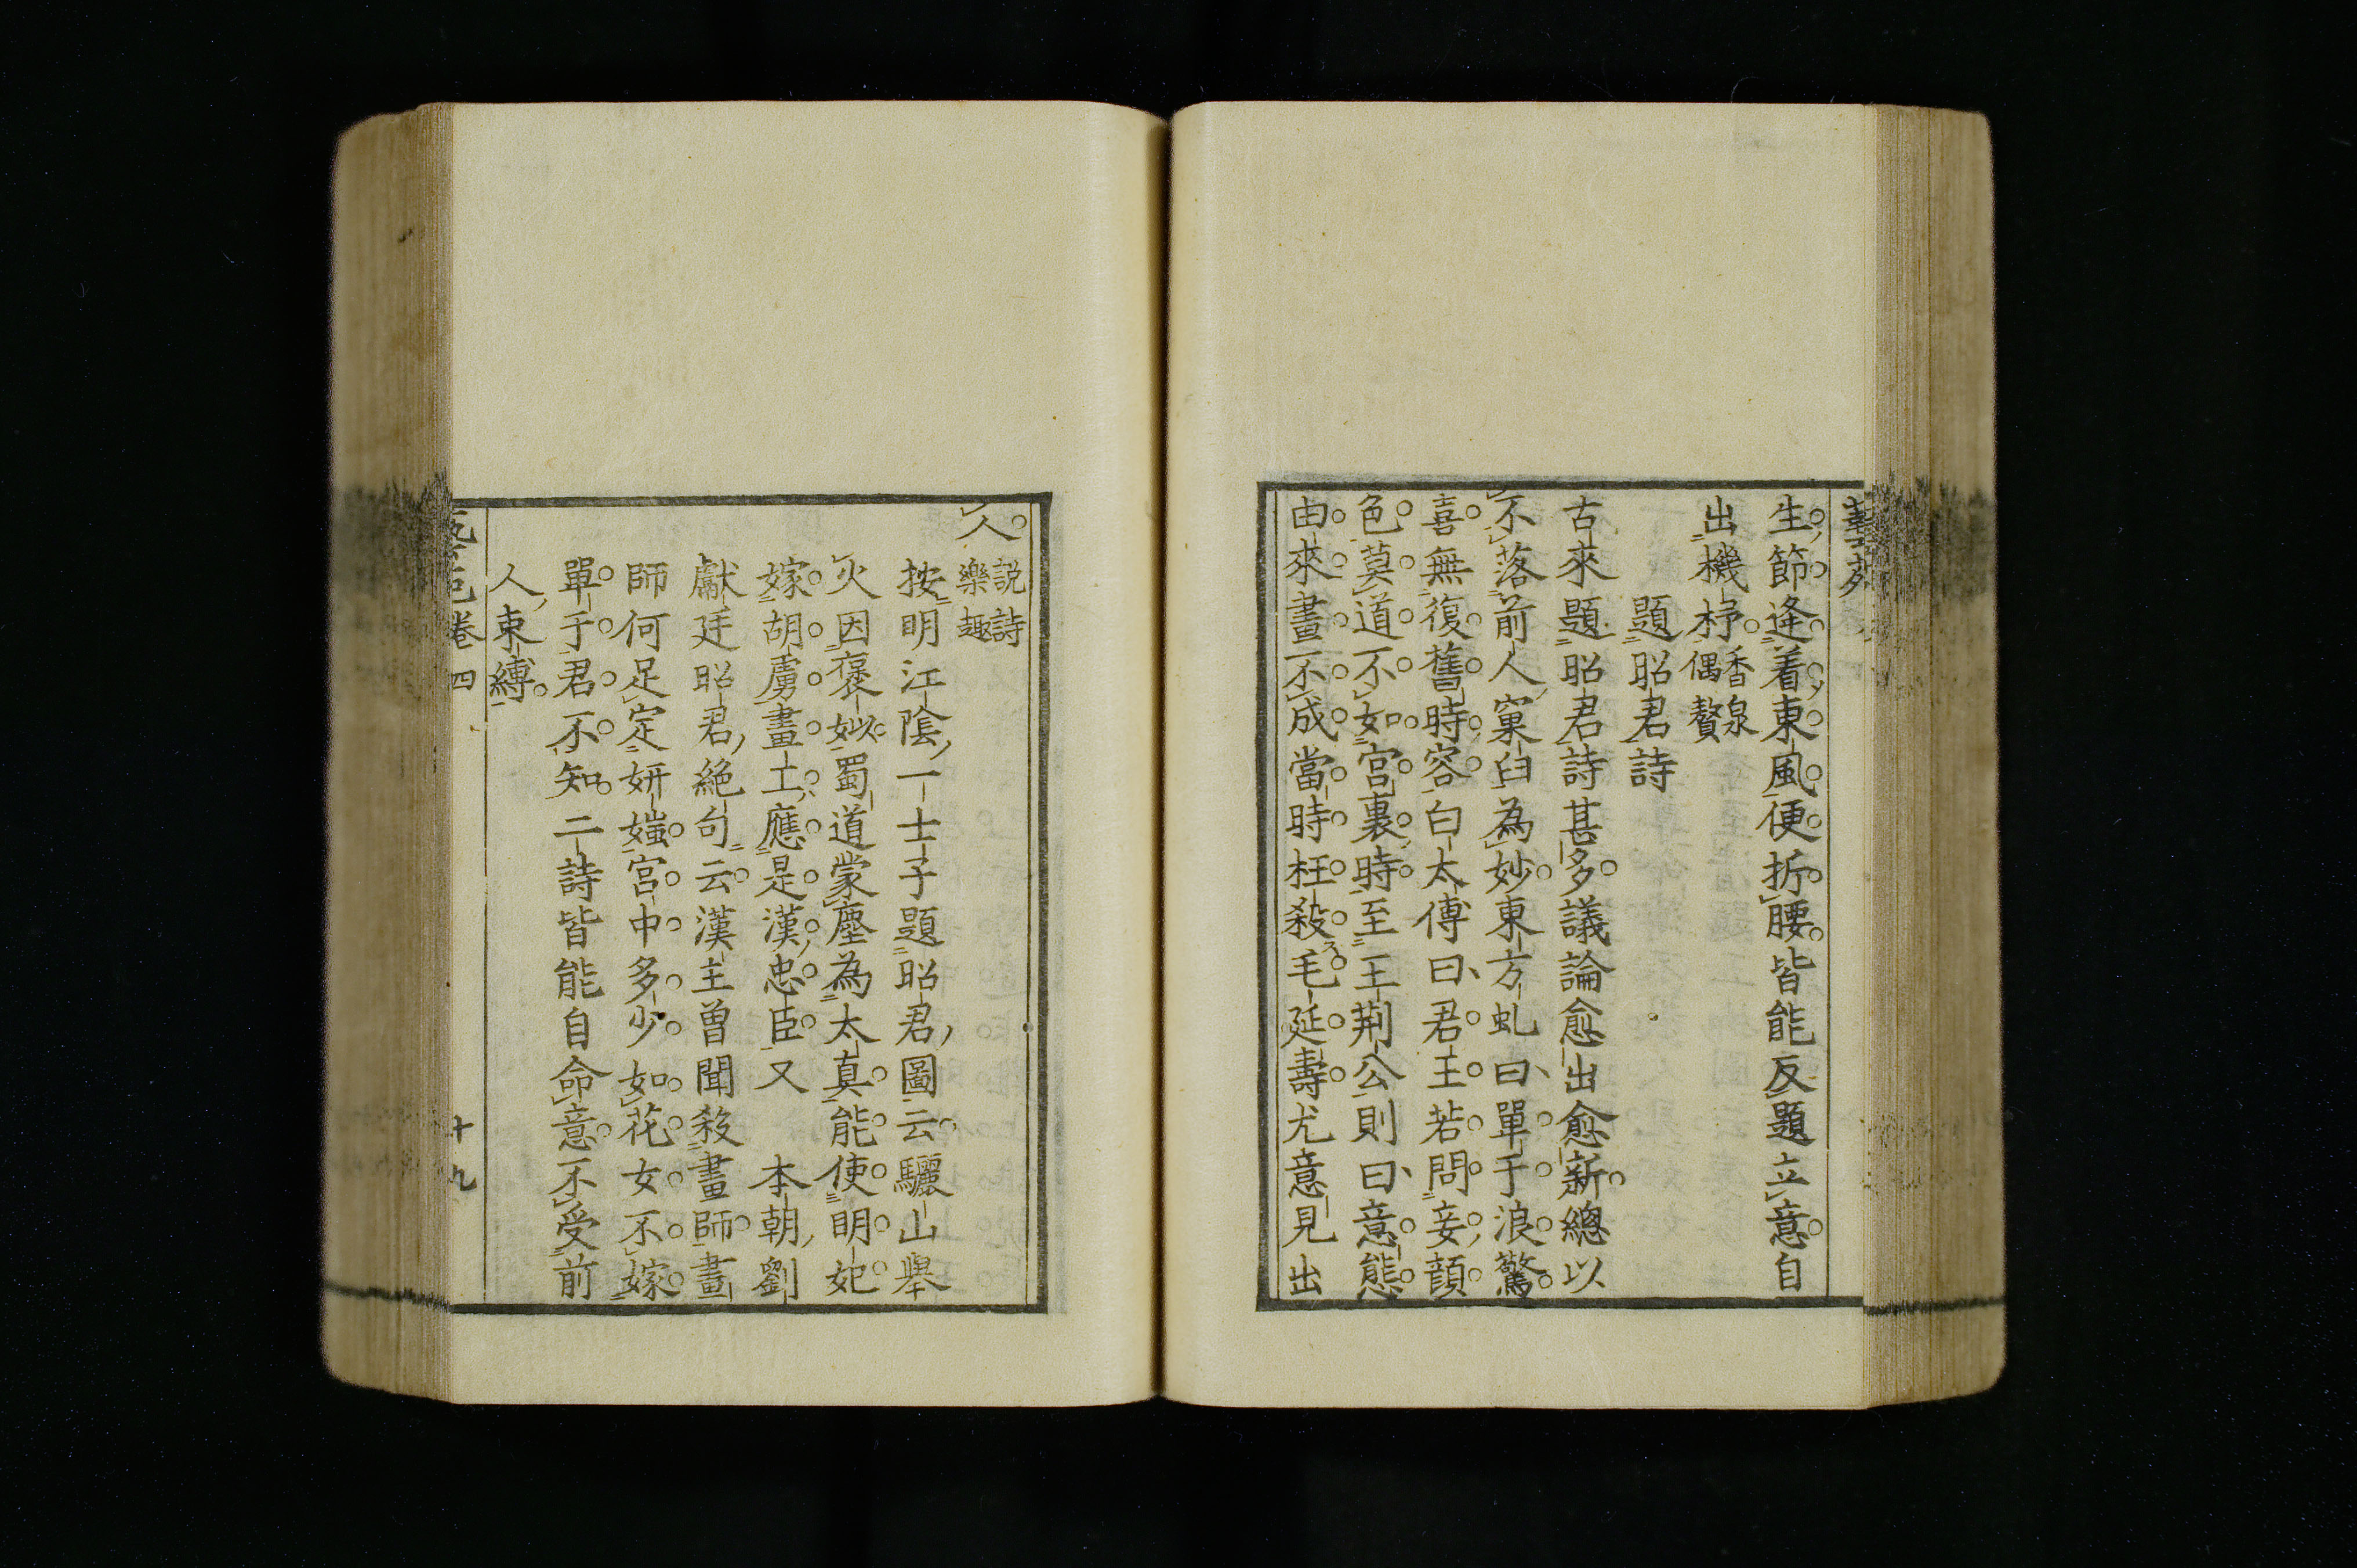 生節逄着東風便折腰皆能反題立意自
出機杼香泉
偶贅
題昭君詩
古來題昭君詩甚多議論愈出愈新總以
不落前人窠臼為妙東方虬曰單于浪驚
喜無復舊時容白太傅曰君王若問妾顔
色莫道不如宮裏時至王荆公則曰意態
由來畫不成當時枉殺毛延壽尤意見出
人說詩
樂趣
按明江陰一士子題昭君圖云驪山舉
火因褒姒蜀道蒙塵為太真能使明妃
嫁胡虜畫士應是漢忠臣又 本朝劉
獻廷昭君絕句云漢主曾聞殺畫師畫
師何足定妍媸宮中多少如花女不嫁
單于君不知二詩皆能自命意不受前
人束縛
卷四
十九